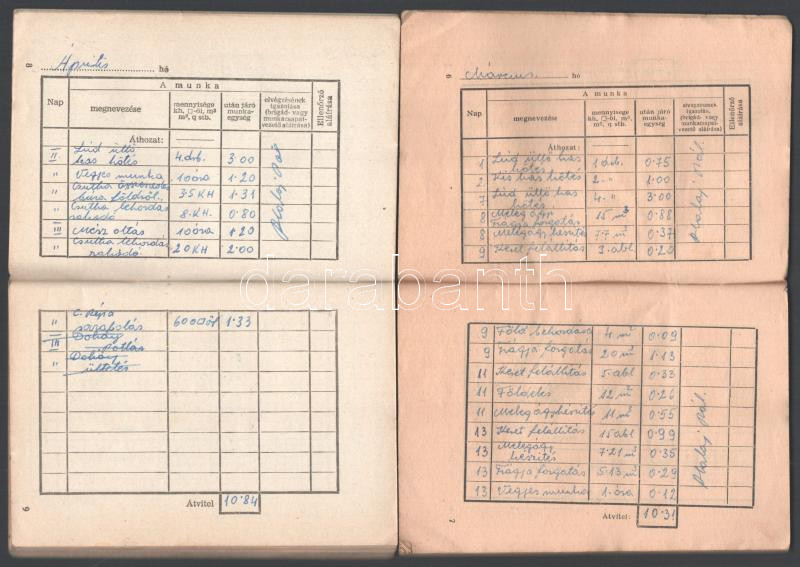 8
Április hó
Nap
A munka
megnevezése
mennyisége kh, □-öl, m² m³, q stb.
után járó munka- egység
elvégzésének igazolása (brigád- vagy munkacsapat- vezető aláírása)
Ellenőrző aláírása
Áthozat:
II Lúd ültő has hötés 4 drb. 3·00
" Vegyes munka 10 óra 1·20
" Csutka földről. 3·5 KH 1·31
" Csutka lehordás rakodó 8·KH. 0·80
III Mész oltás 10 óra 1·20
" Csutka lehordás rakodó. 20 KH 2·00
" C. Répa sarabolás 600□öl 1·33
III Dohány
" Dohány ültetés
Átvitel 10·84
9
6
Március hó
Nap
A munka
megnevezése
mennyisége kh, □-öl, m² m³, q stb.
után járó munka- egység
elvégzésének igazolása, (brigád- vagy munkacsapat- vezető aláírása)
Ellenőrző aláírása
Áthozat:
1 Lúd ültő has hötés 1 drb. 0·75
2 Kis has hötés 2. " 1·00
7 Lúd ültő has hötés 4. " 3·00
8 Melegágy Trágya forgatás 15 m³ 0·88
8 Melegágy készítés 7·7 m² 0·37
9 Keret felállítás 3. abl 0·20
9 Föld behordása 4 m³ 0·09
9 Trágya forgatás 20 m³ 1·13
11 Keret felállítás 5. abl 0·33
11 Földelés 12 m² 0·26
11 Melegágykészítés 11 m² 0·55
13 Keret felállítás 15 abl 0·99
13 Melegágy készítés 7·21 m² 0·35
13 Trágya forgatás 5·13 m³ 0·29
13 Vegyes munka 1. óra 0·12
Átvitel: 10·31
7
darabanth